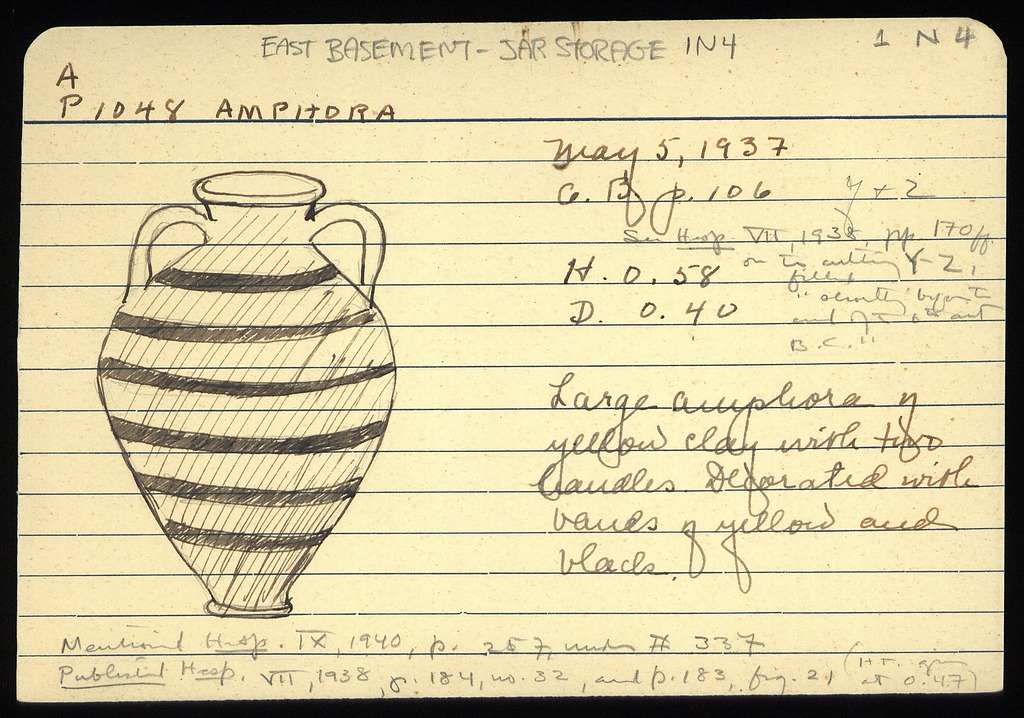 EAST BASEMENT - JAR STORAGE 1N4
1 N 4
A
P 1048 AMPHORA
May 5, 1937
G. B p. 106 Y + Z
See Hesp. VII, 1938, pp. 170ff
on the cutting Y-Z,
filled
"shortly before the
end of the 6th cent
B.C."
H. 0.58
D. 0.40
Large amphora of
yellow clay with two
handles Decorated with
bands of yellow and
black.
Mentioned Hesp. IX, 1940, p. 257, under # 337
Published Hesp. VII, 1938, p. 184, no. 32, and p. 183, fig. 21 (HT. given
at 0.47)